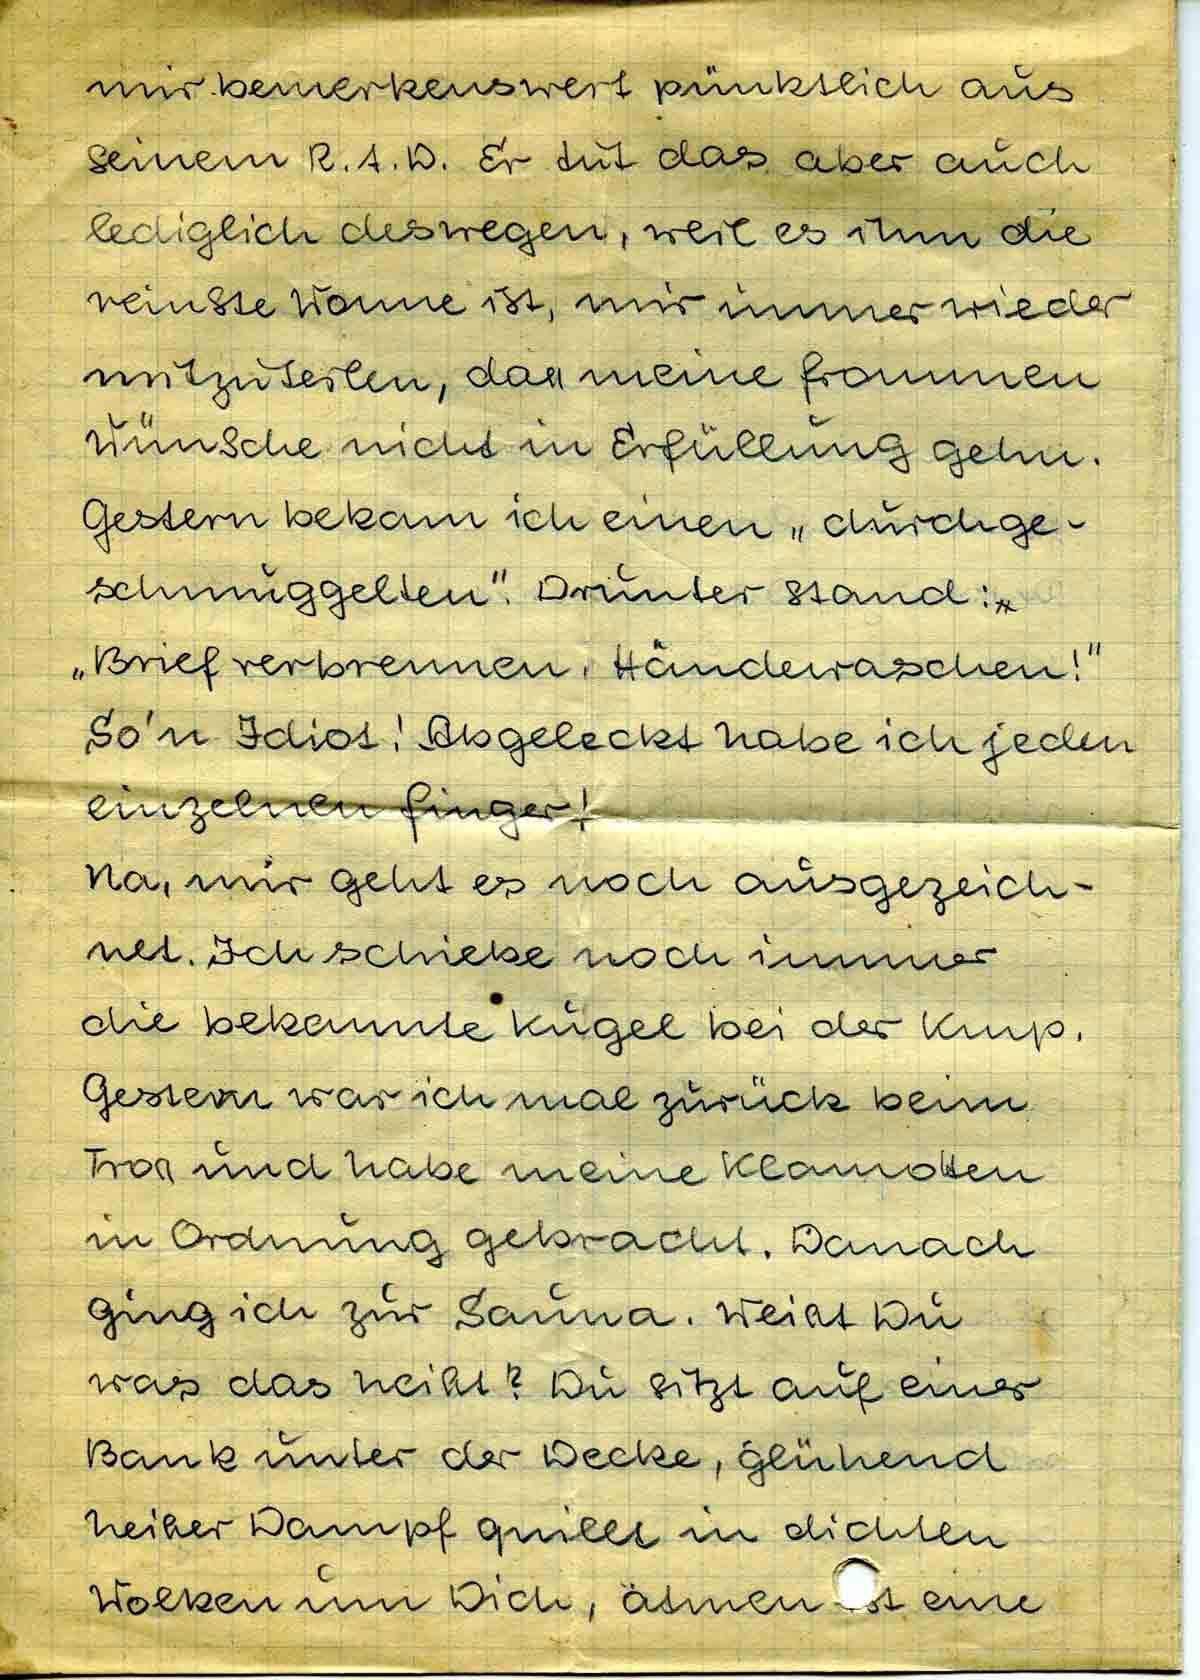 mir bemerkenswert pünktlich aus
seinem R.A.D. Er tut das aber auch
lediglich deswegen, weil es ihm die
reinste Wonne ist, mir immer wieder
mitzuteilen, dass meine frommen
Wünsche nicht in Erfüllung gehn.
Gestern bekam ich einen „durchge-
schmuggelten". Drunter stand:
„Brief verbrennen, Händewaschen!"
So'n Idiot! Abgeleckt habe ich jeden
einzelnen Finger!
Na, mir geht es noch ausgezeich-
net. Ich schiebe noch immer
die bekannte Kugel bei der Kmp.
Gestern war ich mal zurück beim
Tross und habe meine Klamotten
in Ordnung gebracht. Danach
ging ich zur Sauna. Weißt Du
was das heißt? Du sitzt auf einer
Bank unter der Decke, glühend
heißer Dampf quillt in dichten
Wolken um Dich, atmen ist eine